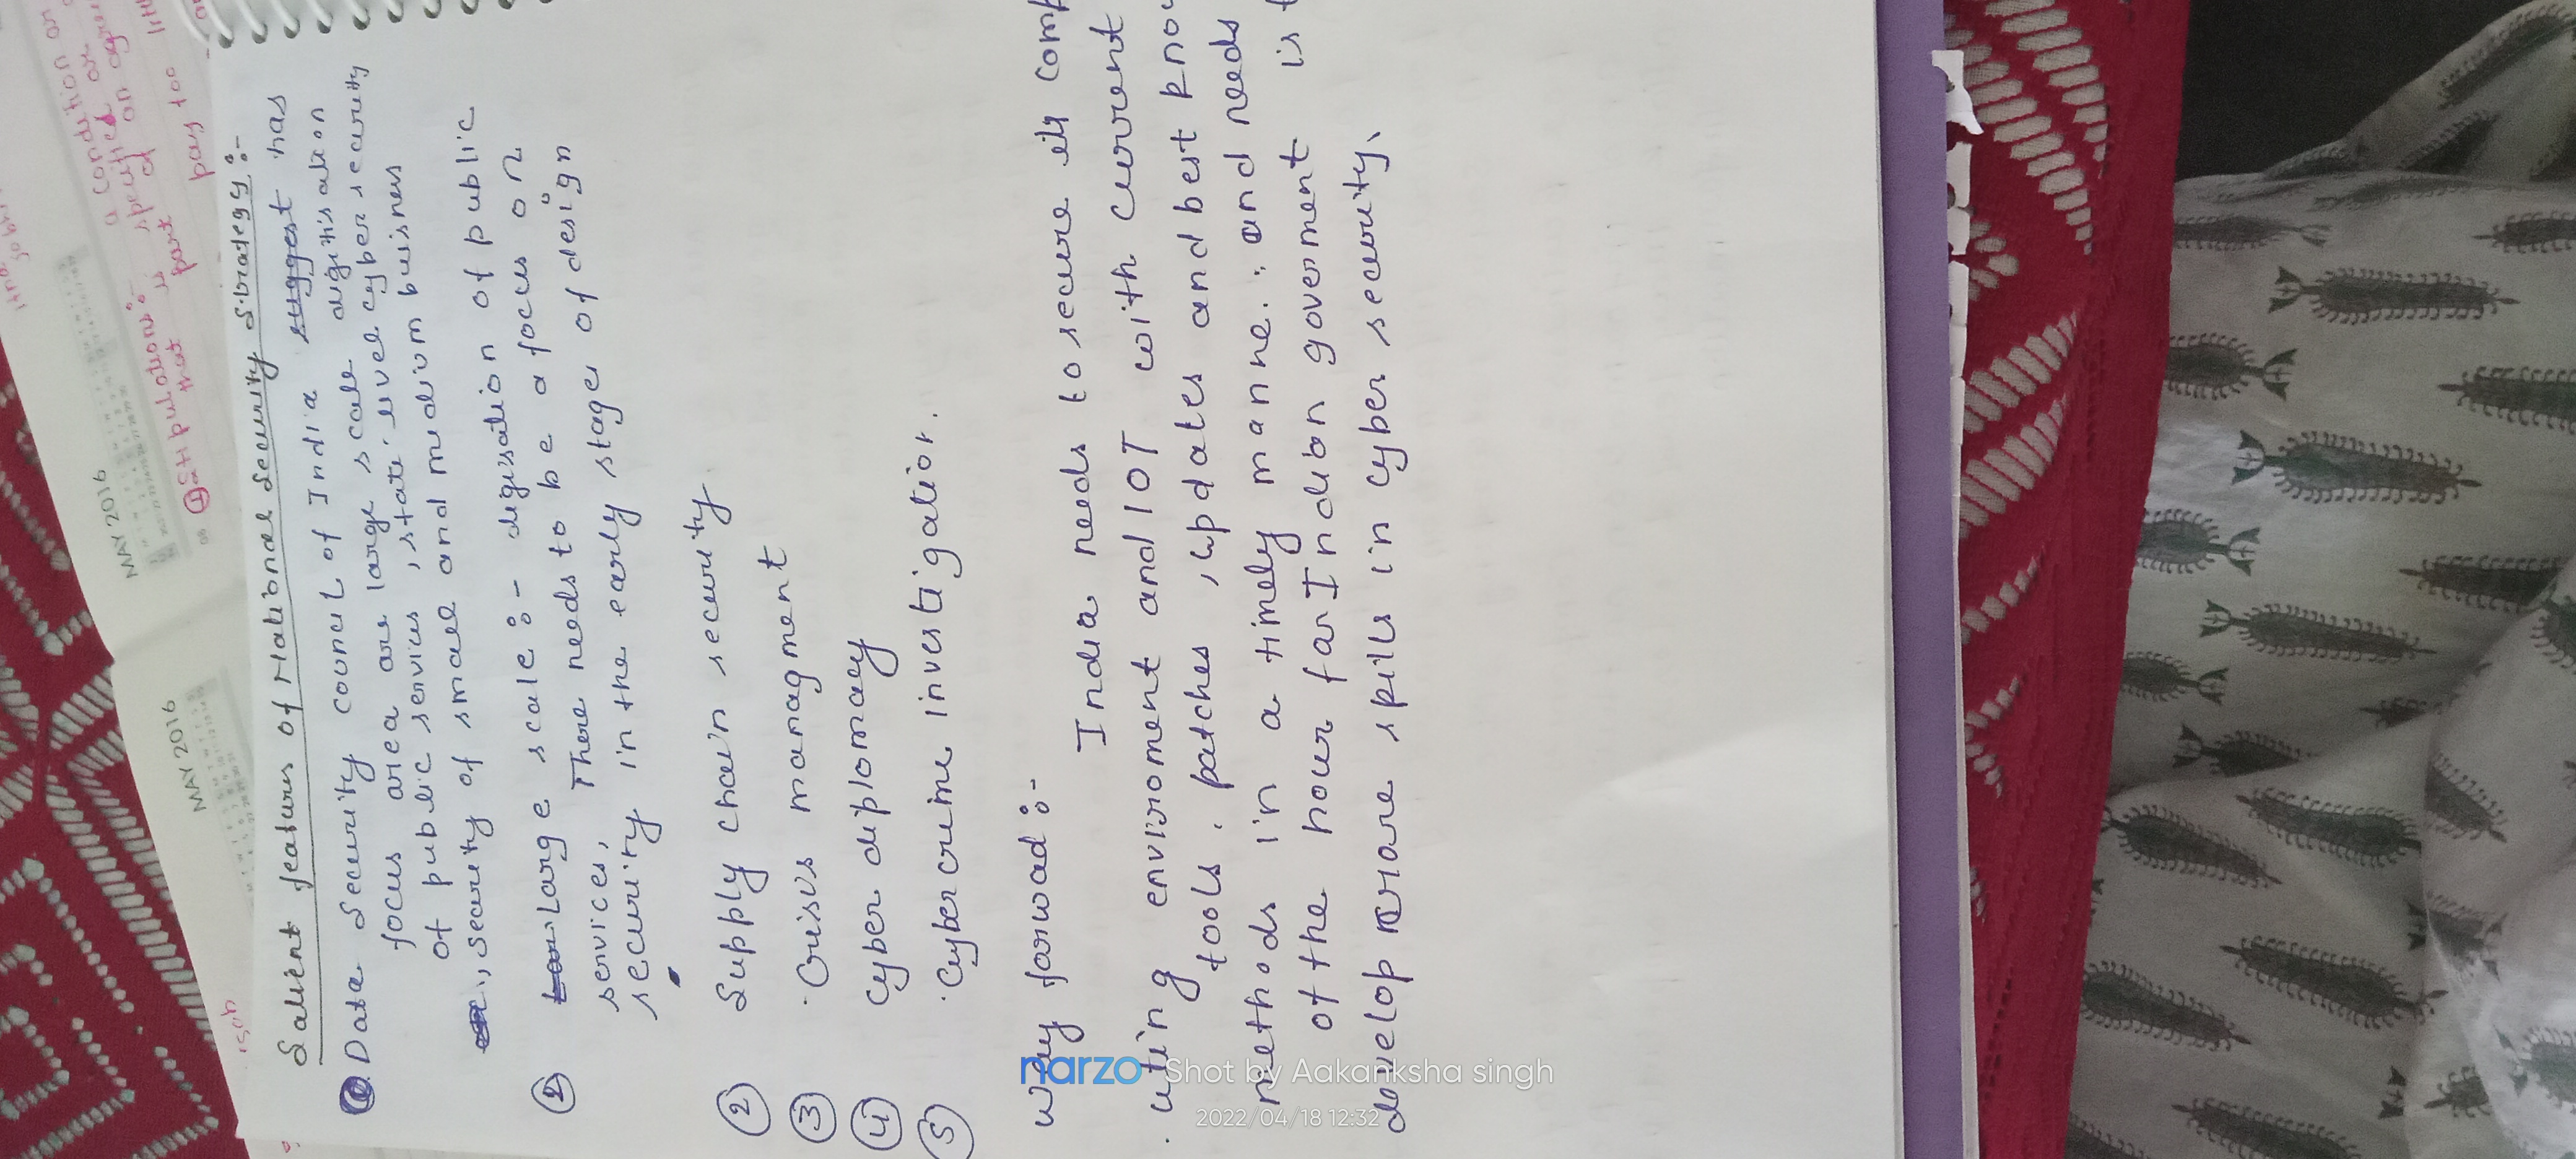 Salient features of National Security Strategy :-
Data Security council of India suggest has
focus area are large scale digitisation
of public services, state level cyber security
, security of small and medium business
① Large scale :- digisation of public
services, There needs to be a focus on
security in the early stages of design
② Supply chain security.
③ Crisis managment
④ Cyber diplomacy
⑤ Cyber crime investigation.
way forwad :-
India needs to secure its comp
uting enviroment and IOT with current
tools, patches, updates and best know
methods in a timely manne. and needs
of the hour for Indian government is t
develop more skills in cyber security.
MAY 2016
MAY 2016
① Stipulations :- a condition or
specified or
that is part of an agree
pay too
narzo Shot by Aakanksha singh
2022/04/18 12:32